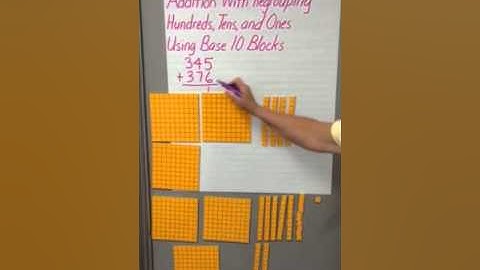 Addition With Regrouping
Hundreds, Tens, and Ones
Using Base 10 Blocks
345
+376
1